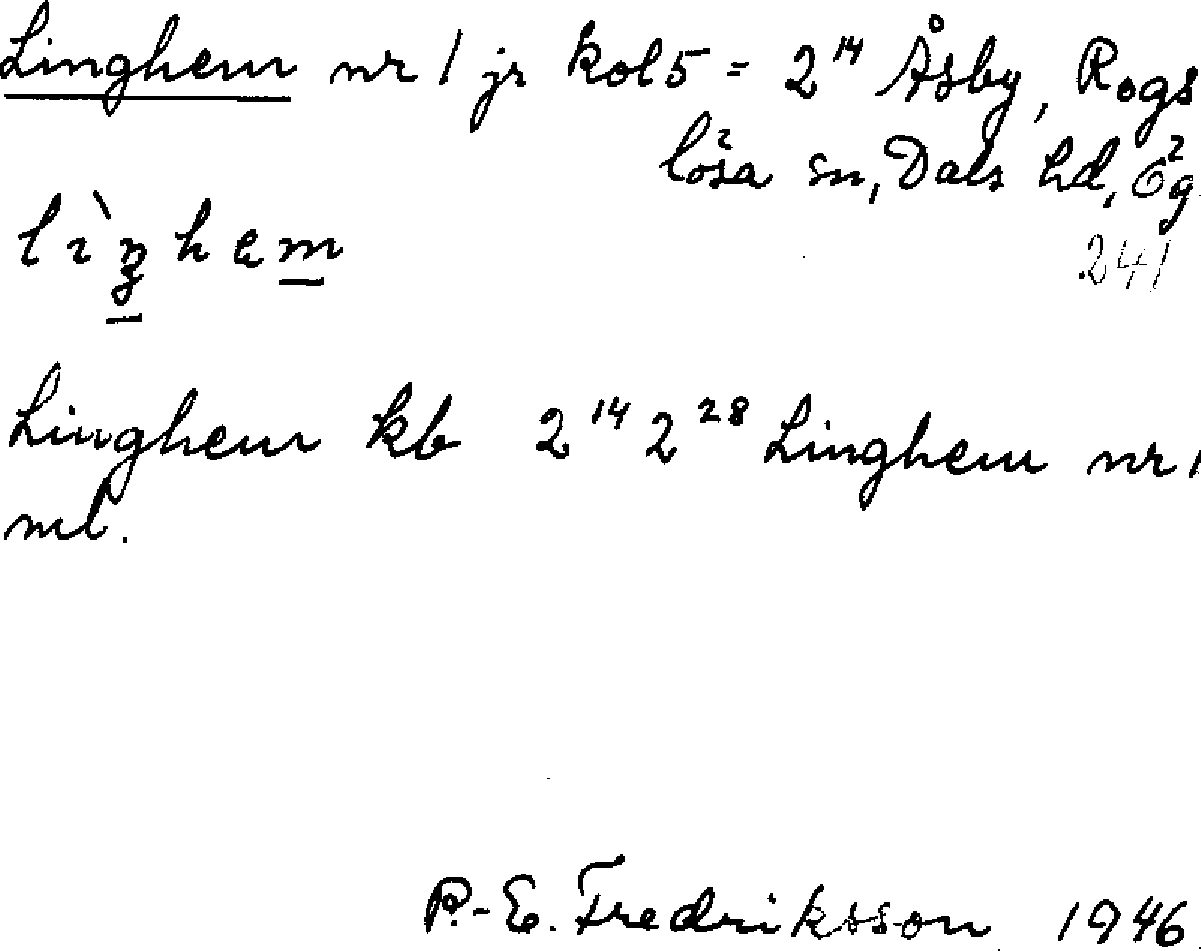 Linghem nr 1 jr kol 5 = 2¹⁴ Åsby, Rogs
lösa sn, Dals hd, Ög
241
lìŋhem
Linghem kb 2¹⁴ 2²⁸ Linghem nr 1
ml.
P.-E. Fredriksson 1946